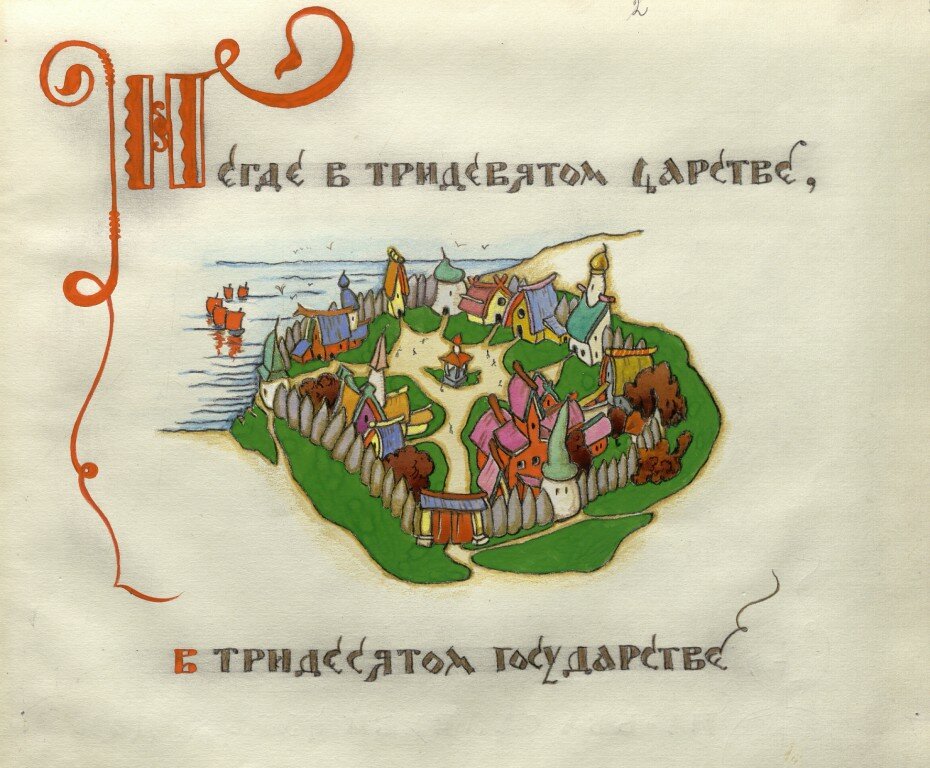 2
Негде в тридевятом царстве,
в тридесятом государстве